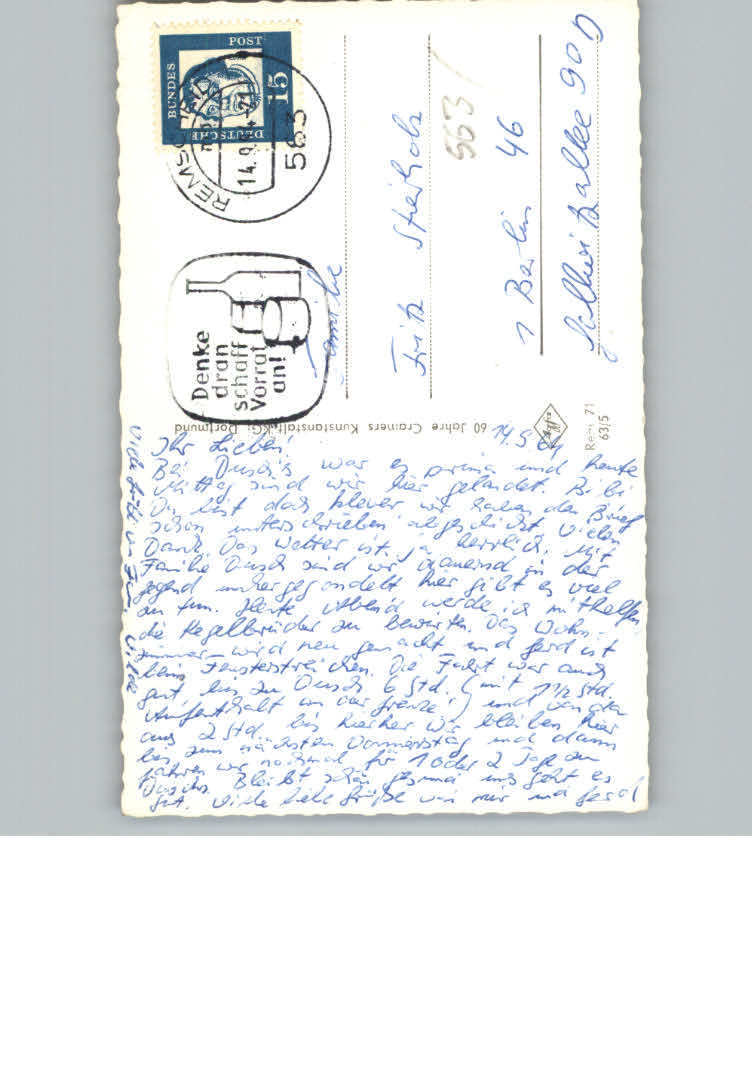 DEUTSCHE
BUNDES
POST
15
REMSCHEID
14.9.64-21
563
Denke
dran
schaff
Vorrat
an!
Familie
Fritz Stierholz
563
1 Berlin 46
90 D
60 Jahre Cramers Kunstanstalt KG, Dortmund
Rems 71
63/5
14.9.64
Ihr Lieben!
Bei Duschs war es prima und heute
Mittag sind wir hier gelandet. Bibi
Du bist doch klever wir haben den Brief
schon unterschrieben abgeschickt vielen
Dank. Das Wetter ist ja herrlich. Mit
Familie Dusch sind wir dauernd in der
Gegend umhergegondelt hier gibt es viel
zu tun. Heute Abend werde ich mithelfen
die Kegelbrüder zu bewirten. Das Wohn-
zimmer wird neu gemacht und Gerd ist
beim Fensterstreichen. Die Fahrt war auch
gut bis zu Dusch 6 Std. (mit 1 1/2 Std.
Aufenthalt an der Grenze) und von da
aus 2 Std. bis hierher Wir bleiben hier
bis zum nächsten Donnerstag und dann
fahren wir nochmal für 1 oder 2 Tage zu
Duschs. Bleibt schön gesund uns geht es
gut. Viele liebe Grüße von mir und Gerd
Viele Grüße von Fam.